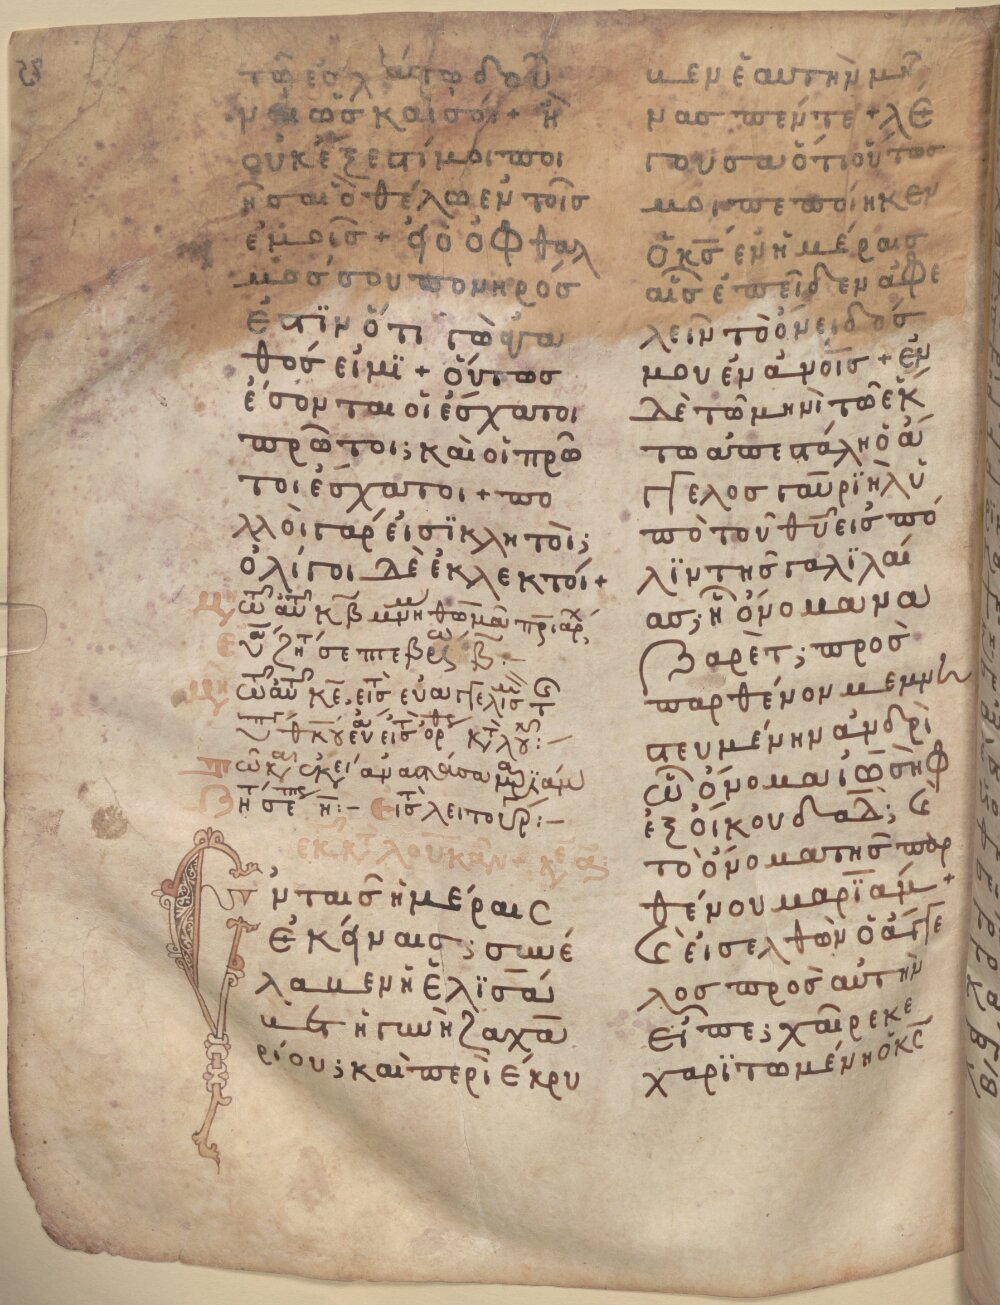 τῶ ἐσχάτω δοῦ
ναι ὡς καὶ σοί + ἢ
οὐκ ἔξεστί μοι ποι
ῆσαι ὃ θέλω ἐν τοῖς
ἐμοῖς + ἢ ὁ ὀφθαλ
μός σου πονηρός
ἐστϊν ὅτι ἐγὼ ἀγα
θός εἰμϊ + οὕτως
ἔσονται οἱ ἔσχατοι
πρῶτοι; καὶ οἱ πρῶ
τοι ἔσχατοι + πο
λλοὶ γάρ εἰσϊ κλητοὶ;
ὀλίγοι δὲ ἐκλεκτοί +
ἐκ κτ λουκᾶν
ν ταῖς ἡμέραις
ἐκείναις; συνέ
λαβεν ἡ ἐλϊσά
βετ ἡ γυνὴ ζαχα
ρίου; καὶ περϊέκρυ
βεν ἑαυτὴν μῆ
νας πέντε + λέ
γουσα ὅτι οὕτως
μοι πεποίηκεν
ὁ κς ἐν ἡμέραις
αἷς ἐπεῖδεν ἀφε
λεῖν τὸ ὄνειδός
μου ἐν ἀνοις + ἐν
δὲ τῶ μηνὶ τῶ ἕκ
τω ἀπεστάλη ὁ ἄγ
γελος γαυρϊὴλ ὑ
πὸ τοῦ θυ εἰς πό
λϊν τῆς γαλϊλαί
ας; ἧ ὄνομα να
ζαρὲτ; πρὸς
παρθένον μεμνη
στευμένην ἀνδρὶ
ὧ ὄνομα ἰωσὴφ
ἐξ οἴκου δαδ; καὶ
τὸ ὄνομα τῆς παρ
θένου μαρϊάμ +
καὶ εἰσελθὼν ὁ ἄγγε
λος πρὸς αὐτὴν
εἶπε; χαῖρε κε
χαρϊτωμένη ὁ κς